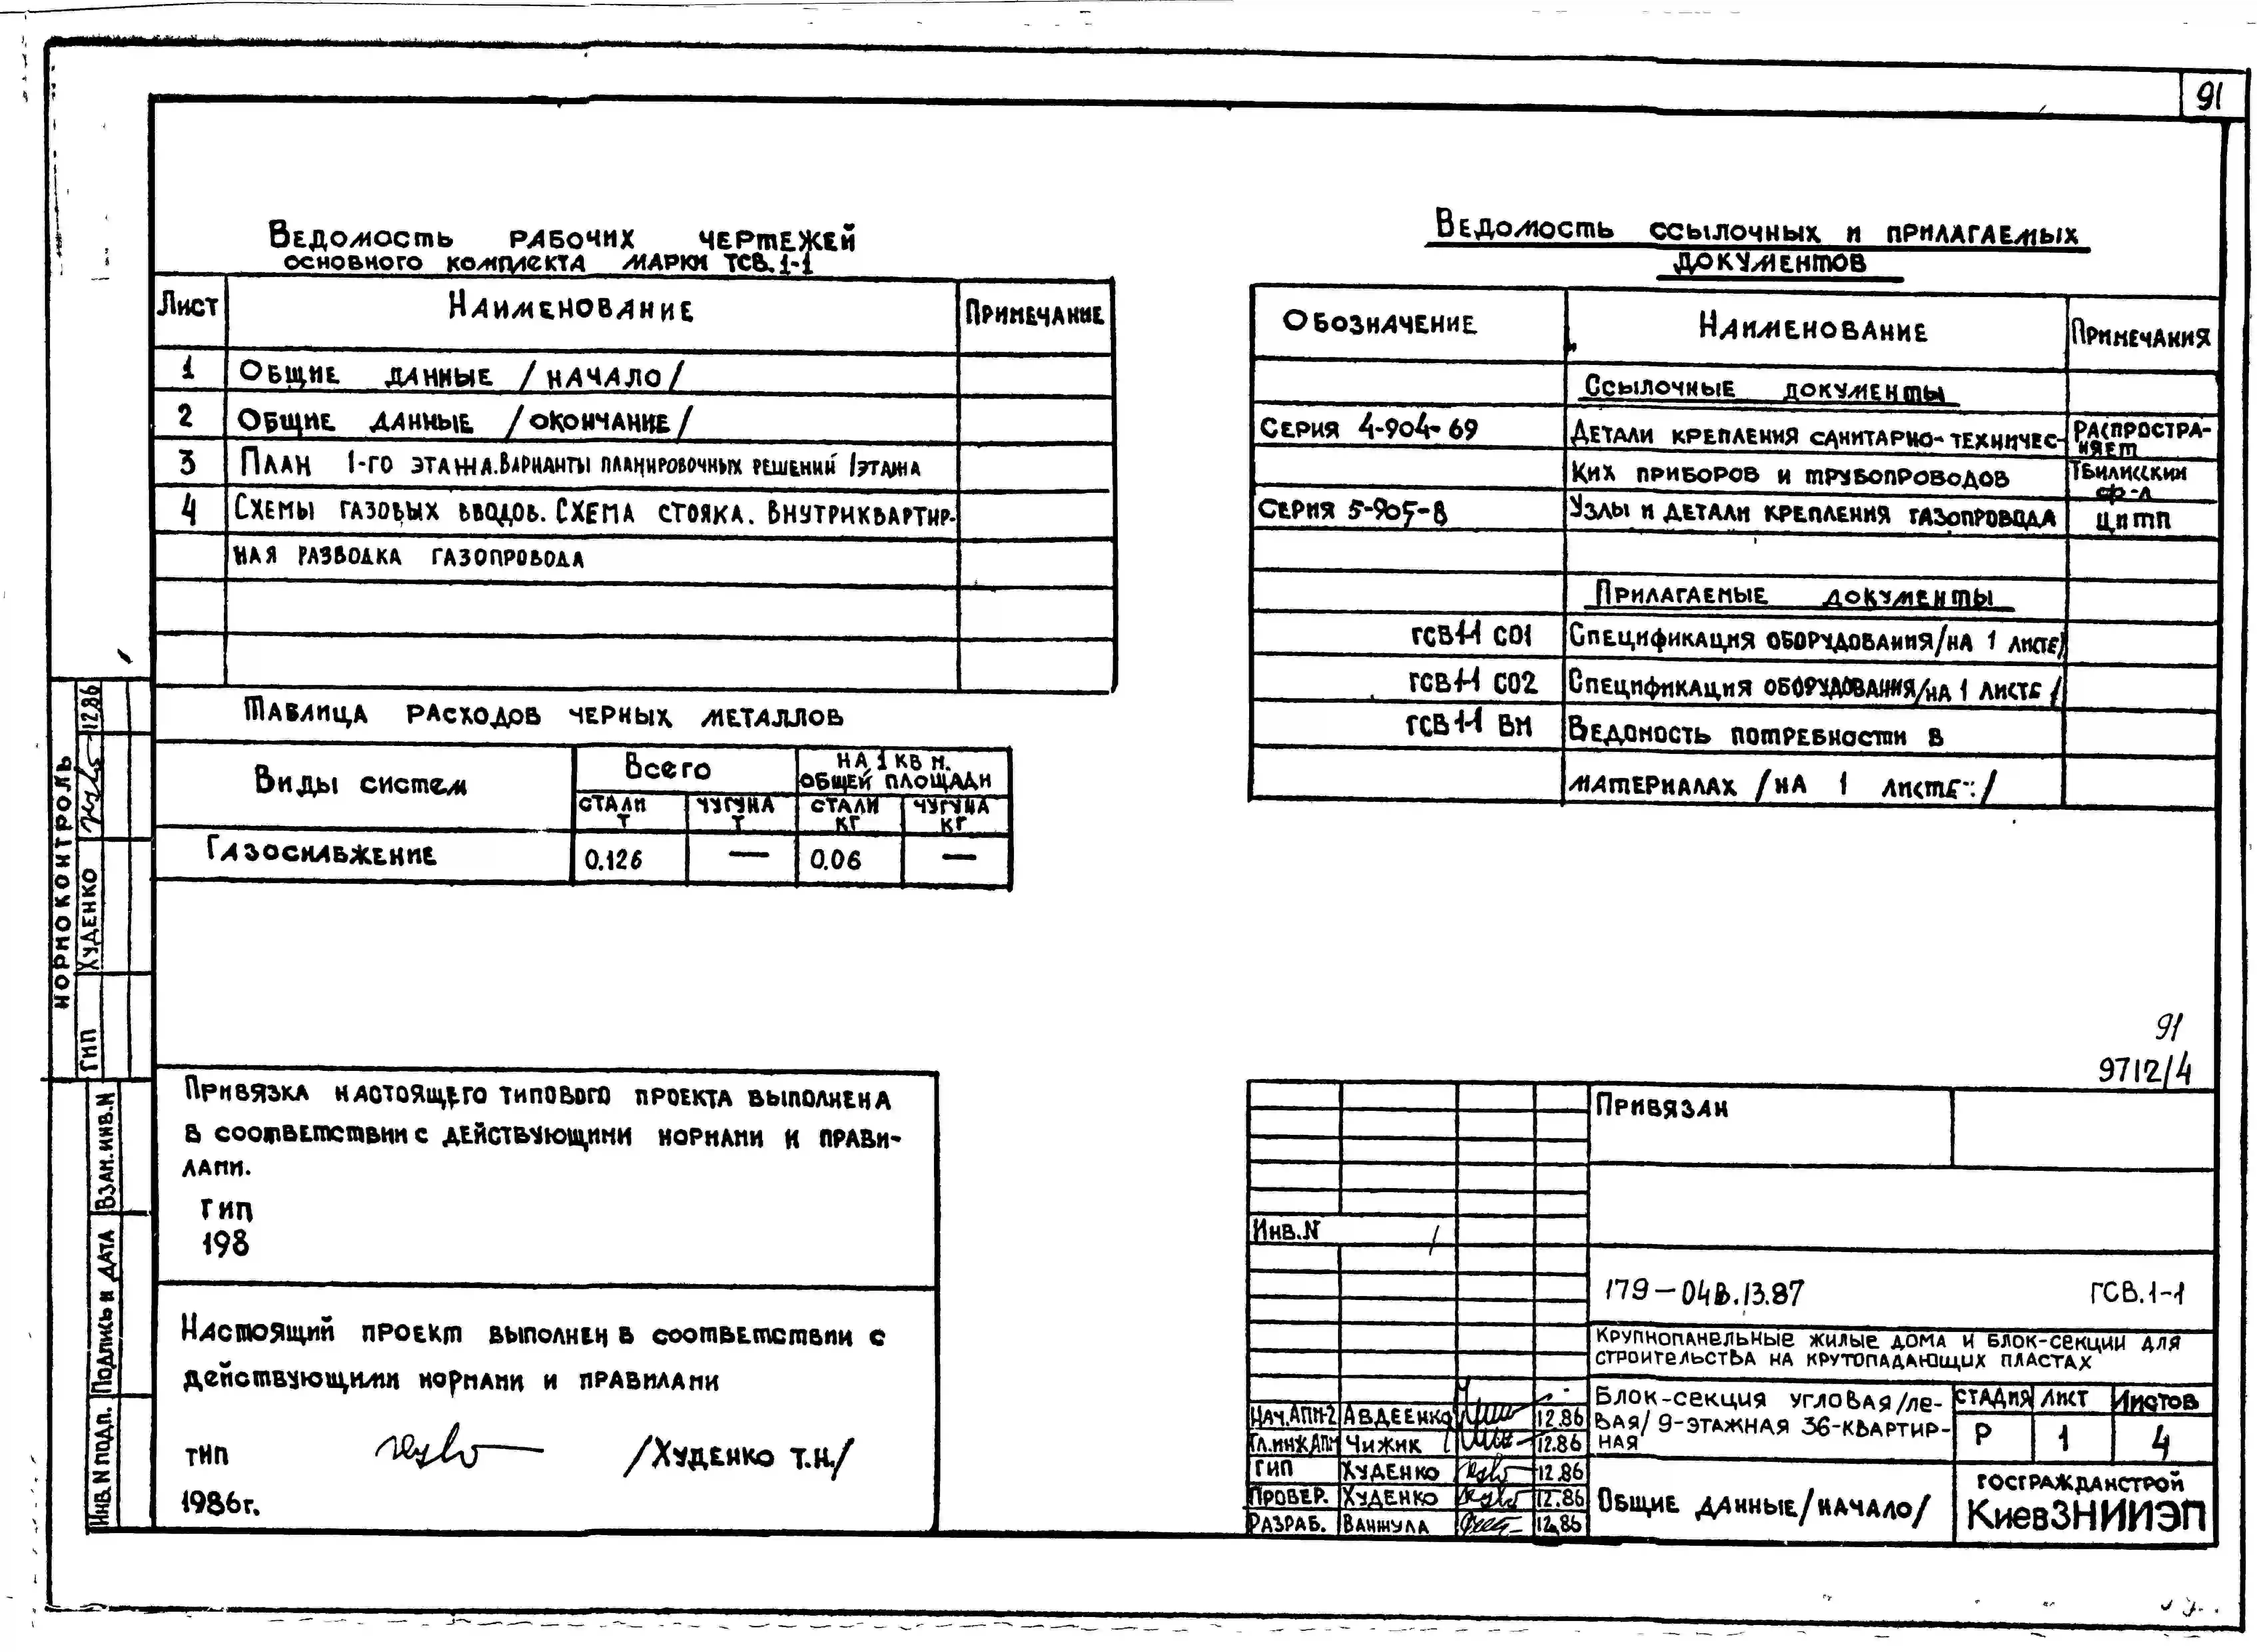 91
Ведомость рабочих чертежей
основного комплекта марки ГСВ.1-1
Лист Наименование Примечание
1 Общие данные /начало/
2 Общие данные /окончание/
3 План 1-го этажа. Варианты планировочных решений 1этажа
4 Схемы газовых вводов. Схема стояка. Внутриквартир-
ная разводка газопровода
Таблица расходов черных металлов
Виды систем Всего на 1 кв м. общей площади
стали т чугуна т стали кг чугуна кг
Газоснабжение 0.126 — 0.06 —
Ведомость ссылочных и прилагаемых
документов
Обозначение Наименование Примечания
Ссылочные документы
Серия 4-904-69 Детали крепления санитарно-техничес- Распростра-
няет
ких приборов и трубопроводов Тбилисский
ф-л
Серия 5-905-8 Узлы и детали крепления газопровода ЦИТП
Прилагаемые документы
ГСВ1-1 СО1 Спецификация оборудования/на 1 листе/
ГСВ1-1 СО2 Спецификация оборудования/на 1 листе/
ГСВ1-1 ВМ Ведомость потребности в
материалах /на 1 листе/
Нормоконтроль
ГИП Худенко 12.86
Взам.инв.N
Подпись и дата
Инв.N подл.
Привязка настоящего типового проекта выполнена
в соответствии с действующими нормами и прави-
лами.
ГИП
198
Настоящий проект выполнен в соответствии с
действующими нормами и правилами
ГИП /Худенко Т.Н./
1986г.
91
9712/4
Привязан
Инв.N
179-04В.13.87 ГСВ.1-1
Крупнопанельные жилые дома и блок-секции для
строительства на крутопадающих пластах
Нач.АПМ-2 Авдеенко 12.86
Гл.инж.АПМ Чижик 12.86
ГИП Худенко 12.86
Провер. Худенко 12.86
Разраб. Ванжула 12.86
Блок-секция угловая/ле-
вая/ 9-этажная 36-квартир-
ная
Стадия Лист Листов
Р 1 4
Общие данные/начало/
Госгражданстрой
КиевЗНИИЭП